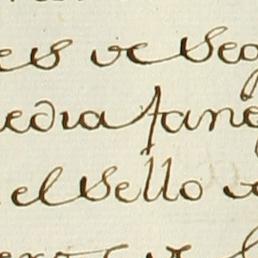 es de Seg
media fane
el Sello de